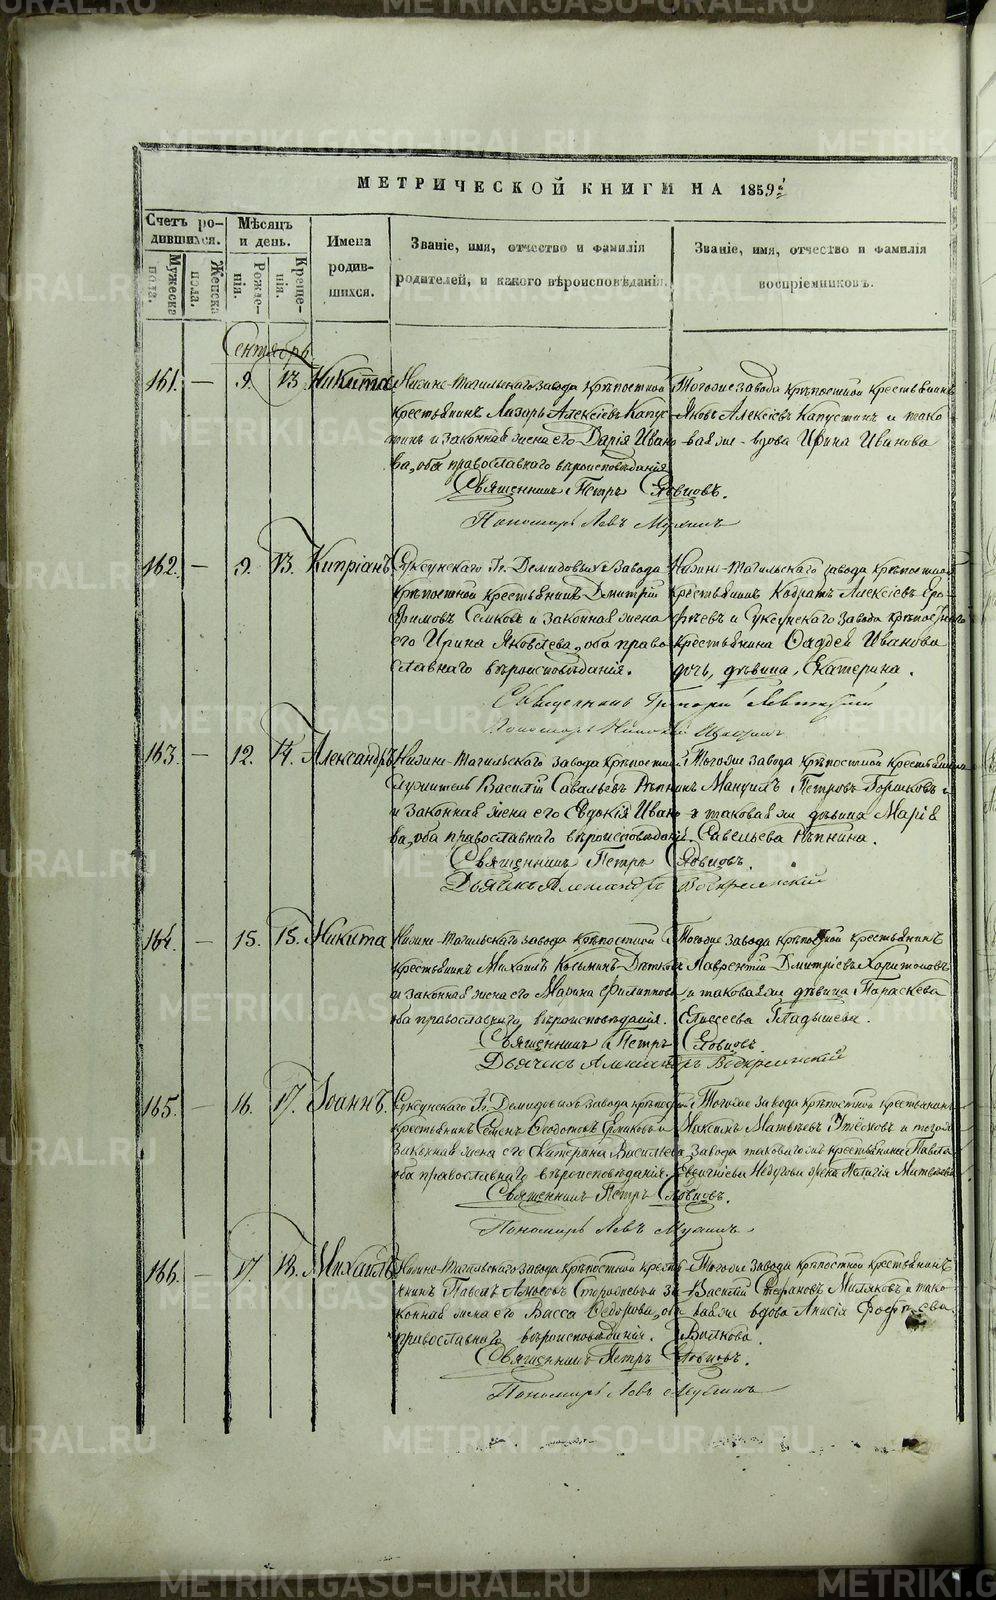 МЕТРИЧЕСКОЙ КНИГИ НА 1859й
Счетъ ро-
дившихся.
Мужеска
пола.
Женска
пола.
Мѣсяцъ
и день.
Рожде-
нія.
Креще-
нія.
Имена
родив-
шихся.
Званіе, имя, отчество и фамилія
родителей, и какого вѣроисповѣданія.
Званіе, имя, отчество и фамилія
воспріемниковъ.
Сентябрь
161. — 9. 13. Никита
Нижне-Тагильскаго завода крѣпостной
крестьянинъ Лазарь Алексѣевъ Капус-
тинъ и законная жена его Дарія Ивано-
ва, оба православнаго вѣроисповѣданія
Тогоже завода крѣпостной крестьянинъ
Яковъ Алексѣевъ Капустинъ и тако-
вая же вдова Ирина Иванова
Священникъ Петръ Словцовъ.
Пономарь Левъ
162. — 9. 13. Кипріанъ
Суксунскаго Гг. Демидовыхъ завода
крѣпостной крестьянинъ Дмитрій
и законная жена
его Ирина Яковлева, оба право-
славнаго вѣроисповѣданія.
Нижне-Тагильскаго завода крѣпостной
крестьянинъ Кодратъ Алексѣевъ Еро-
фѣевъ и Суксунскаго завода крѣпостнаго
крестьянина Фаддея Иванова
дочь, дѣвица, Екатерина.
Священникъ Григорій Левитскій
Пономарь Николай
163. — 12. 14. Александръ
Нижне-Тагильскаго завода крѣпостной
служитель Василій Савельевъ Рѣпнинъ
и законная жена его Евдокія Ивано-
ва, оба православнаго вѣроисповѣданія.
Тогоже завода крѣпостной крестьянинъ
Мануилъ Петровъ Горшковъ и
таковая же дѣвица Марія
Савельева Рѣпнина.
Священникъ Петръ Словцовъ.
Дьячекъ Александръ Воскресенскій
164. — 15. 15. Никита
Нижне-Тагильскаго завода крѣпостной
крестьянинъ Михаилъ Козьминъ
и законная жена его Марина Филиппова
оба православнаго вѣроисповѣданія.
Тогоже завода крѣпостной крестьянинъ
Лаврентій Дмитріевъ Харитоновъ
и таковая же дѣвица Параскева
Елисеева Гладышева.
Священникъ Петръ Словцовъ.
Дьячекъ Александръ Воскресенскій
165. — 16. 17. Іоаннъ.
Суксунскаго Гг. Демидовыхъ завода крѣпостной
крестьянинъ Семенъ Ѳедотовъ и
законная жена его Екатерина Васильева
оба православнаго вѣроисповѣданія.
Тогоже завода крѣпостной крестьянинъ
Максимъ Матвѣевъ и тогоже
завода таковагоже крестьянина Павла
жена Пелагія Матвѣева
Священникъ Петръ Словцовъ.
Пономарь Левъ
166. — 17. 18. Михаилъ
Нижне-Тагильскаго завода крѣпостной кресть-
янинъ Павелъ Амосовъ и за-
конная жена его Васса Ѳедорова, оба
православнаго вѣроисповѣданія.
Тогоже завода крѣпостной крестьянинъ
Василій Стефановъ и тако-
вая же вдова Анисія
Волкова.
Священникъ Петръ Словцовъ.
Пономарь Левъ
METRIKI.GASO-URAL.RU